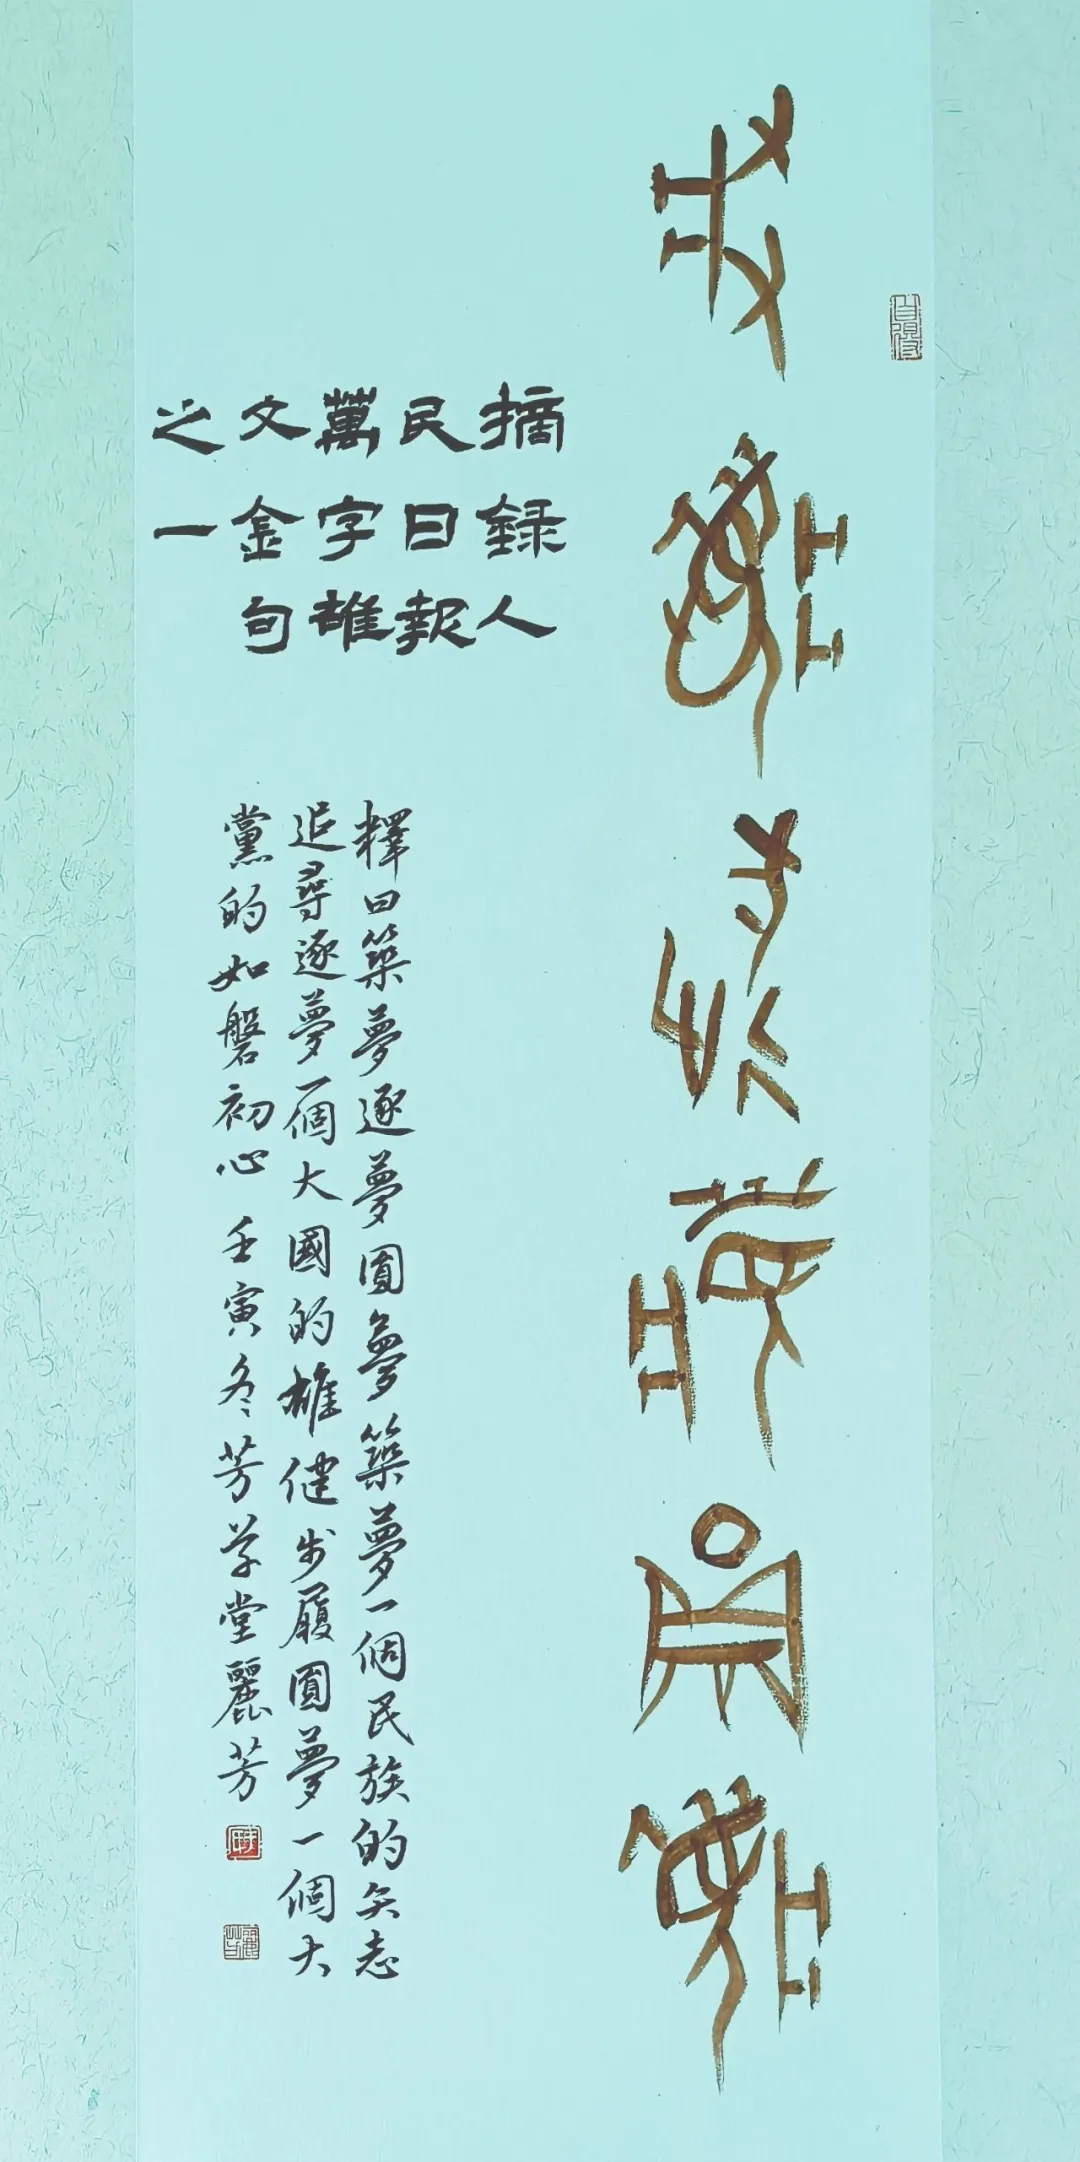 築夢逐夢圓夢
摘錄人
民日報
萬字雄
文金句
之一
釋曰築夢逐夢圓夢築夢一個民族的矢志
追尋逐夢一個大國的雄健步履圓夢一個大
黨的如磐初心 壬寅冬芳草堂麗芳